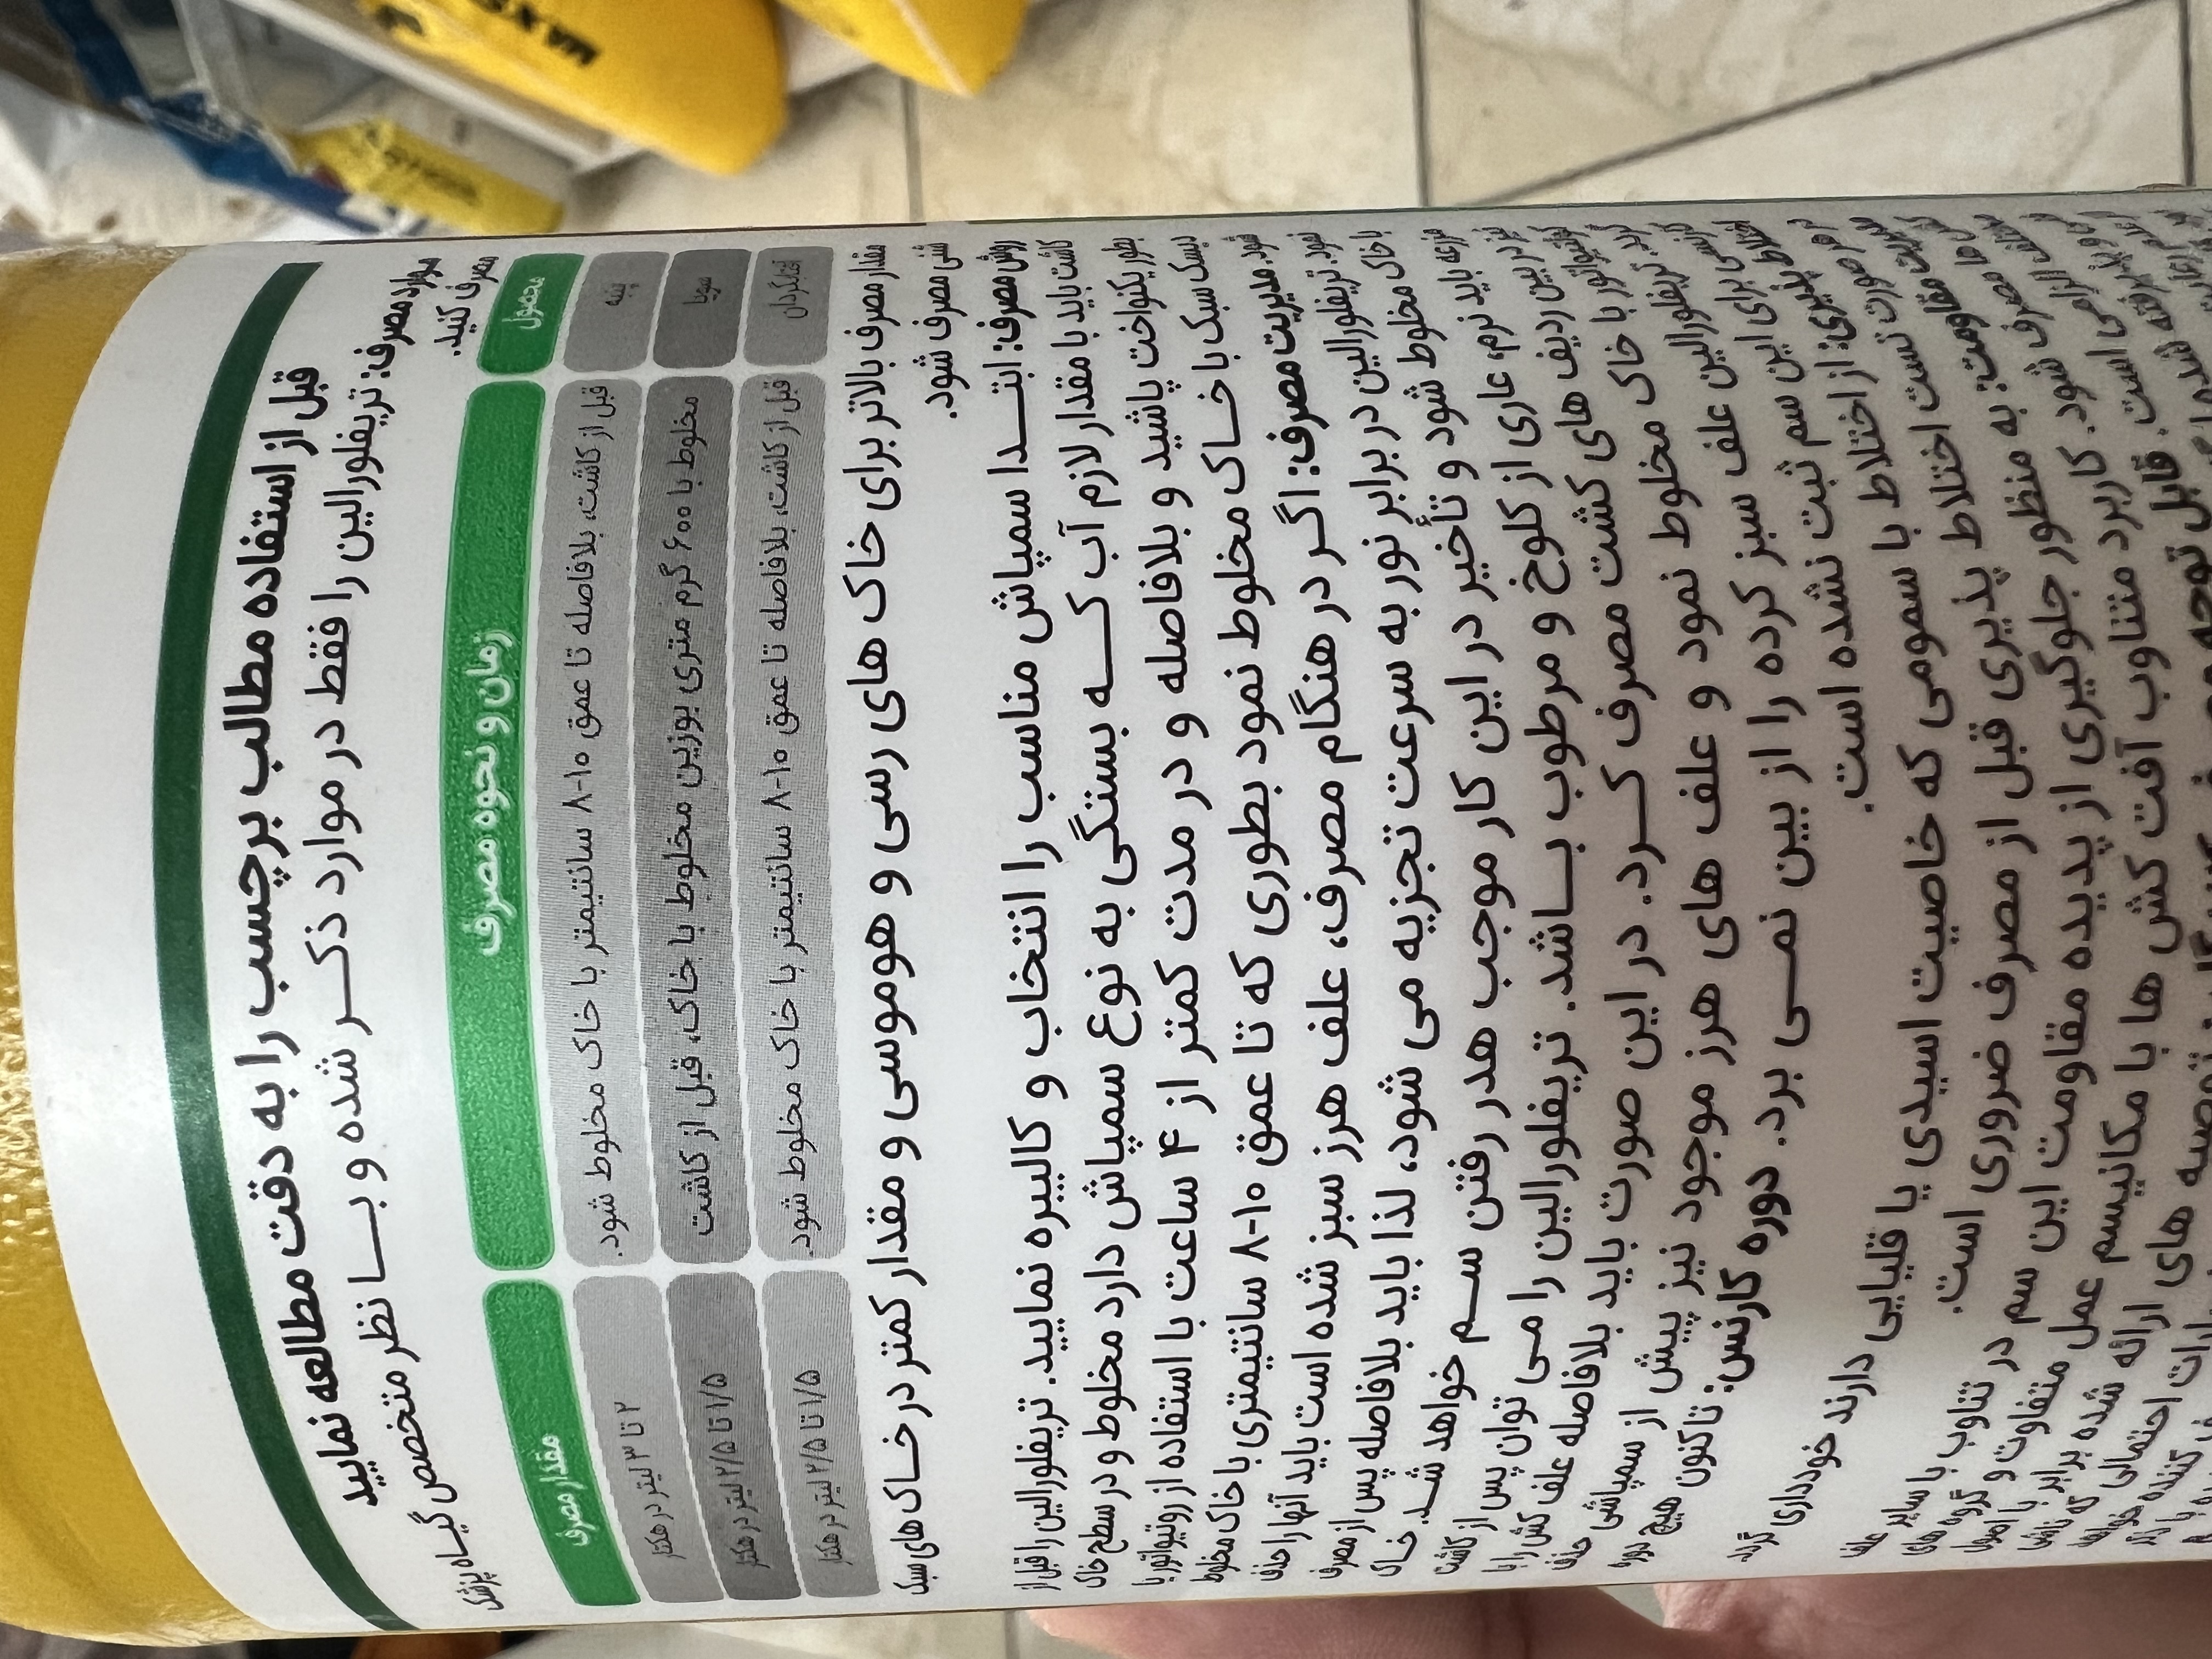 قبل از استفاده مطالب برچسب را به دقت مطالعه نمایید
موارد مصرف: تریفلورالین را فقط در موارد ذکر شده و با نظر متخصص گیاه پزشکی
مصرف کنید.
محصول زمان و نحوه مصرف مقدار مصرف
پنبه قبل از کاشت، بلافاصله تا عمق ۱۰-۸ سانتیمتر با خاک مخلوط شود. ۲ تا ۳ لیتر در هکتار
سویا مخلوط با ۶۰۰ گرم متری بوزین مخلوط با خاک، قبل از کاشت ۱/۵ تا ۲/۵ لیتر در هکتار
آفتابگردان قبل از کاشت، بلافاصله تا عمق ۱۰-۸ سانتیمتر با خاک مخلوط شود. ۱/۵ تا ۲/۵ لیتر در هکتار
مقدار مصرف بالاتر برای خاک های رسی و هوموسی و مقدار کمتر در خاک های سبک
شنی مصرف شود.
روش مصرف: ابتدا سمپاش مناسب را انتخاب و کالیبره نمایید. تریفلورالین را قبل از
کاشت باید با مقدار لازم آب که بستگی به نوع سمپاش دارد مخلوط و در سطح خاک
بطور یکنواخت پاشید و بلافاصله و در مدت کمتر از ۴ ساعت با استفاده از روتیواتور یا
دیسک سبک با خاک مخلوط نمود بطوری که تا عمق ۱۰-۸ سانتیمتری با خاک مخلوط
شود. مدیریت مصرف: اگر در هنگام مصرف، علف هرز سبز شده است باید آنها را حذف
نمود. تریفلورالین در برابر نور به سرعت تجزیه می شود، لذا باید بلافاصله پس از مصرف
با خاک مخلوط شود و تأخیر در این کار موجب هدر رفتن سم خواهد شد. خاک
مزرعه باید نرم، عاری از کلوخ و مرطوب باشد. تریفلورالین را می توان پس از کاشت
نیز در بین ردیف های کشت مصرف کرد. در این صورت باید بلافاصله علف کش را با
کولتیواتور با خاک مخلوط نمود و علف های هرز موجود نیز پیش از سمپاشی حذف
گردد. تریفلورالین علف سبز کرده را از بین نمی برد. دوره کارنس: تاکنون هیچ دوره
کارنسی برای این سم ثبت نشده است.
اختلاط پذیری: از اختلاط با سمومی که خاصیت اسیدی یا قلیایی دارند خودداری گردد.
در هر صورت تست اختلاط پذیری قبل از مصرف ضروری است.
مدیریت مقاومت: به منظور جلوگیری از پدیده مقاومت این سم در تناوب با سایر علف
کش ها مصرف شود. کاربرد متناوب آفت کش ها با مکانیسم عمل متفاوت و گروه های
الزامی است. قابل توجه توصیه های ارائه شده برابر با اصول